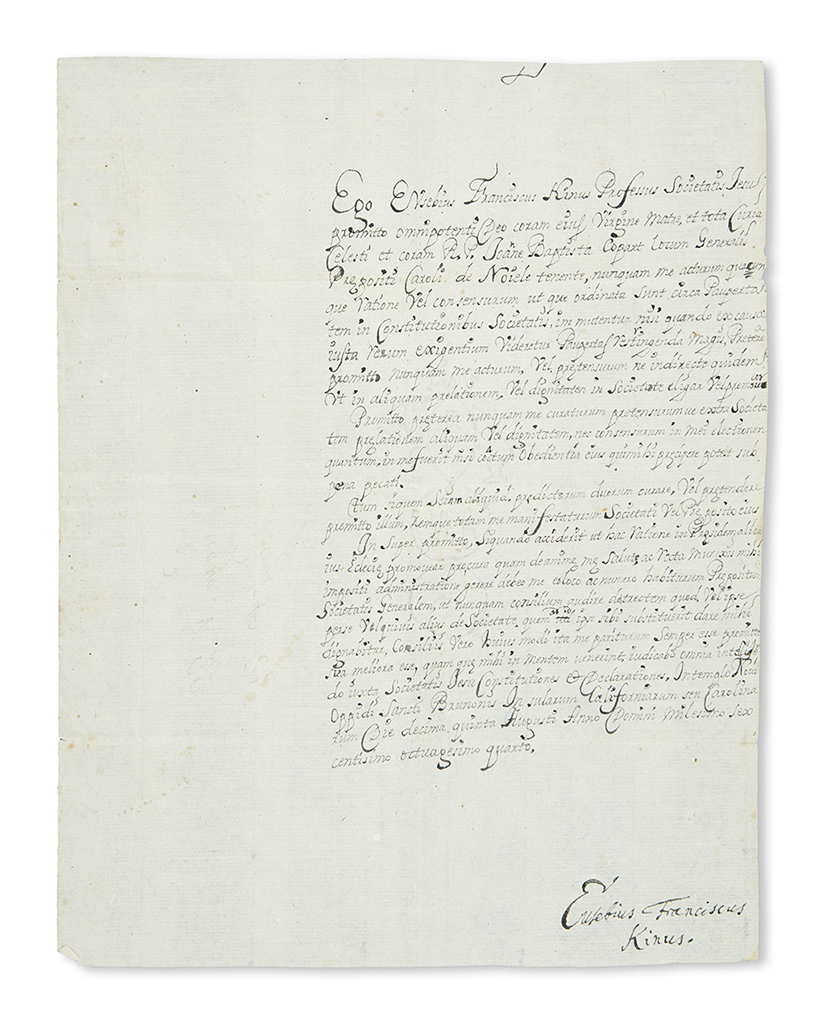 Ego Eusebius Franciscus Kinus Professus Societatis Jesu
promitto omnipotenti Deo coram eius Virgine Matre, et tota Curia
Celesti et coram R.P. Joane Baptista Copart locum Generalis
Prepositi Caroli de Noiele tenente, nunquam me acturum quacun
que Ratione Vel consensurum ut que ordinata sunt circa Pauperta
tem in Constitutionibus Societatis, im mutentur nisi quando ex causa
iusta Rerum exigentium Videretur Paupertas restringenda Magis, Preterea
promitto nunquam me acturum, Vel, pretensurum ne indirecte quidem
Ut in aliquam prelationem, Vel dignitatem in Societate eligar Vel promovear
Promitto preterea nunquam me curaturum pretensurumue extra Societa
tem prelationem aliquam Vel dignitatem, nec consensurum in mei electionem
quantum, in me fuerit nisi coactum Obedientia eius qui mihi precipere potest sub
pena pecati.
Tum siquem Sciam aliquid, predictorum duorum curare, Vel pretendere
promitto illum, Remque totam me manifestaturum Societati Vel Preposito eius
In super promitto, siquando acciderit ut hac Ratione in Presidem alicu
ius Eclecie promovear procura quam de anime me Salute ac Recta Muneris mihi
impositi administratione gerere debeo me eo loco ac numero habiturum Prepositum
Societatis Generalem, ut nunquam consilium audire detrectem quod Vel ipse
per se Vel quiuis alius de Societate quem ipse sibi substituerit dare mihi
dignabitur, Consiliis Vero huius modi ita me pariturum Semper esse promitto
si ea meliora esse, quam que mihi in mentem venerint, iudicabo omnia intelige
do iuxta Societatis Jesu Constitutiones & Declarationes, In templo Novi
Oppidi Sancti Brunonis In sularum Californiarum seu Carolina
rum Die decima quinta Augusti Anno Domini Milessmo sex
centisimo octuagesimo quarto,
Eusebius Franciscus
Kinus.